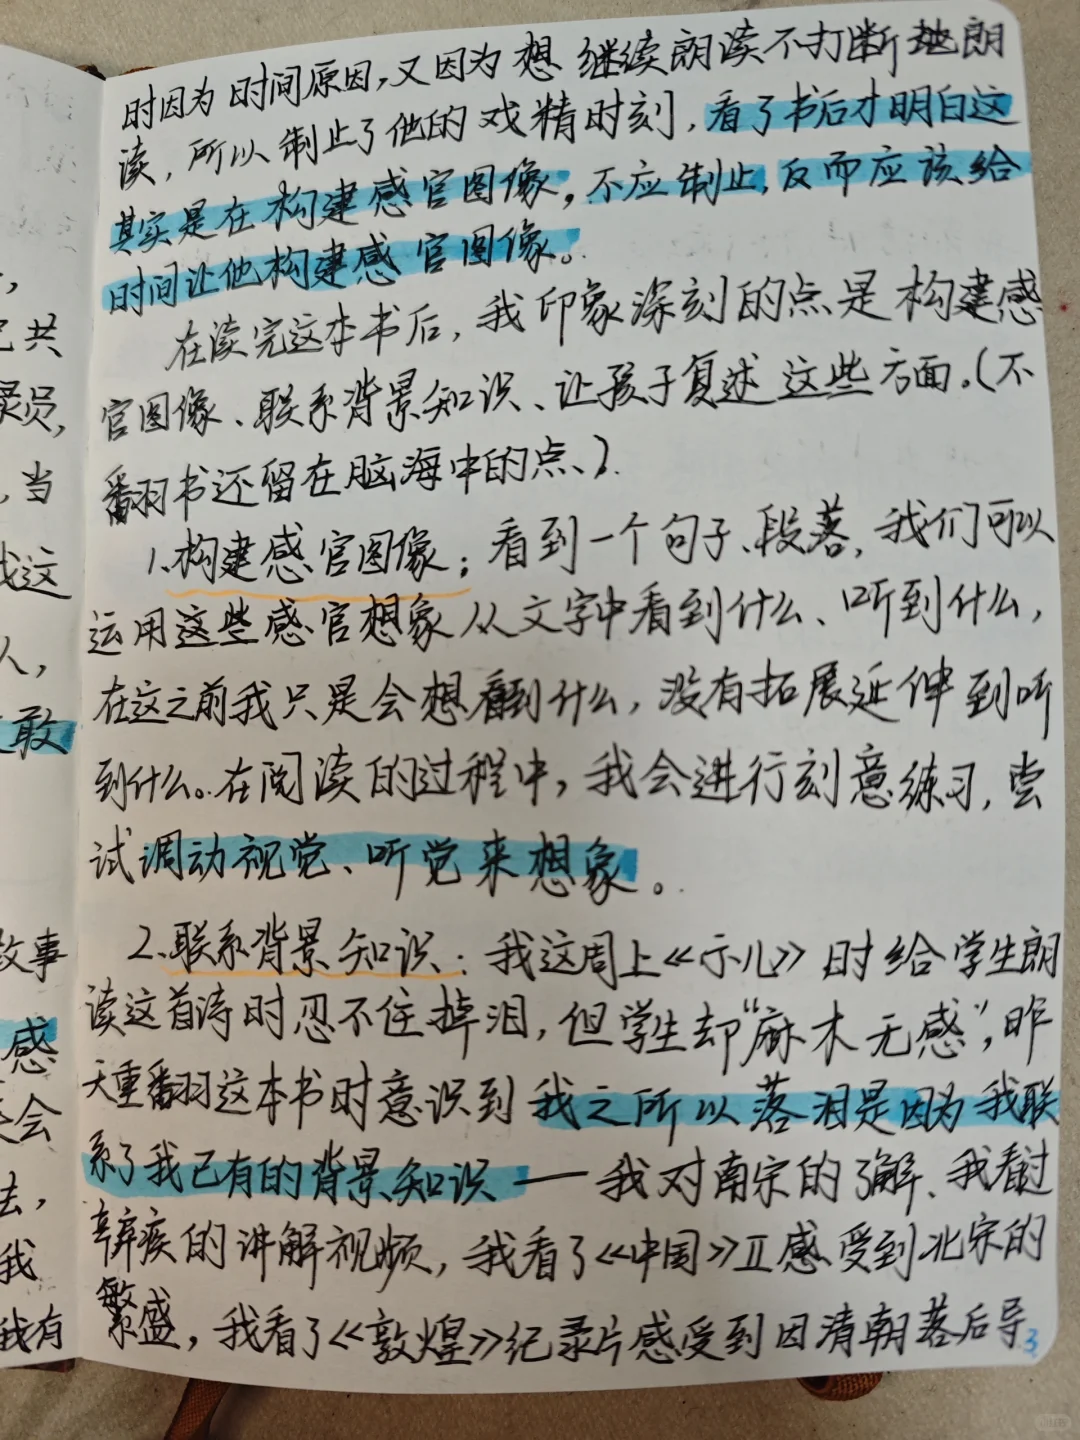 时因为时间原因,又因为想继续朗读不打断地朗
读,所以制止了他的戏精时刻,看了书后才明白这
其实是在构建感官图像,不应制止,反而应该给
时间让他构建感官图像。
在读完这本书后,我印象深刻的点是构建感
官图像、联系背景知识、让孩子复述这些方面。(不
翻书还留在脑海中的点、).
1.构建感官图像:看到一个句子、段落,我们可以
运用这些感官想象从文字中看到什么、听到什么,
在这之前我只是会想看到什么,没有拓展延伸到听
到什么。在阅读的过程中,我会进行刻意练习,尝
试调动视觉、听觉来想象。
2.联系背景知识:我这周上《示儿》时给学生朗
读这首诗时忍不住掉泪,但学生却“麻木无感”,昨
天重翻这本书时意识到我之所以落泪是因为我联
系了我已有的背景知识——我对南宋的了解、我看过
辛弃疾的讲解视频,我看了《中国》Ⅱ感受到北宋的
繁盛,我看了《敦煌》纪录片感受到因清朝落后导
3
它共
录员,
,当
我这
人,
敢
故事
感
会
去,
我
我有